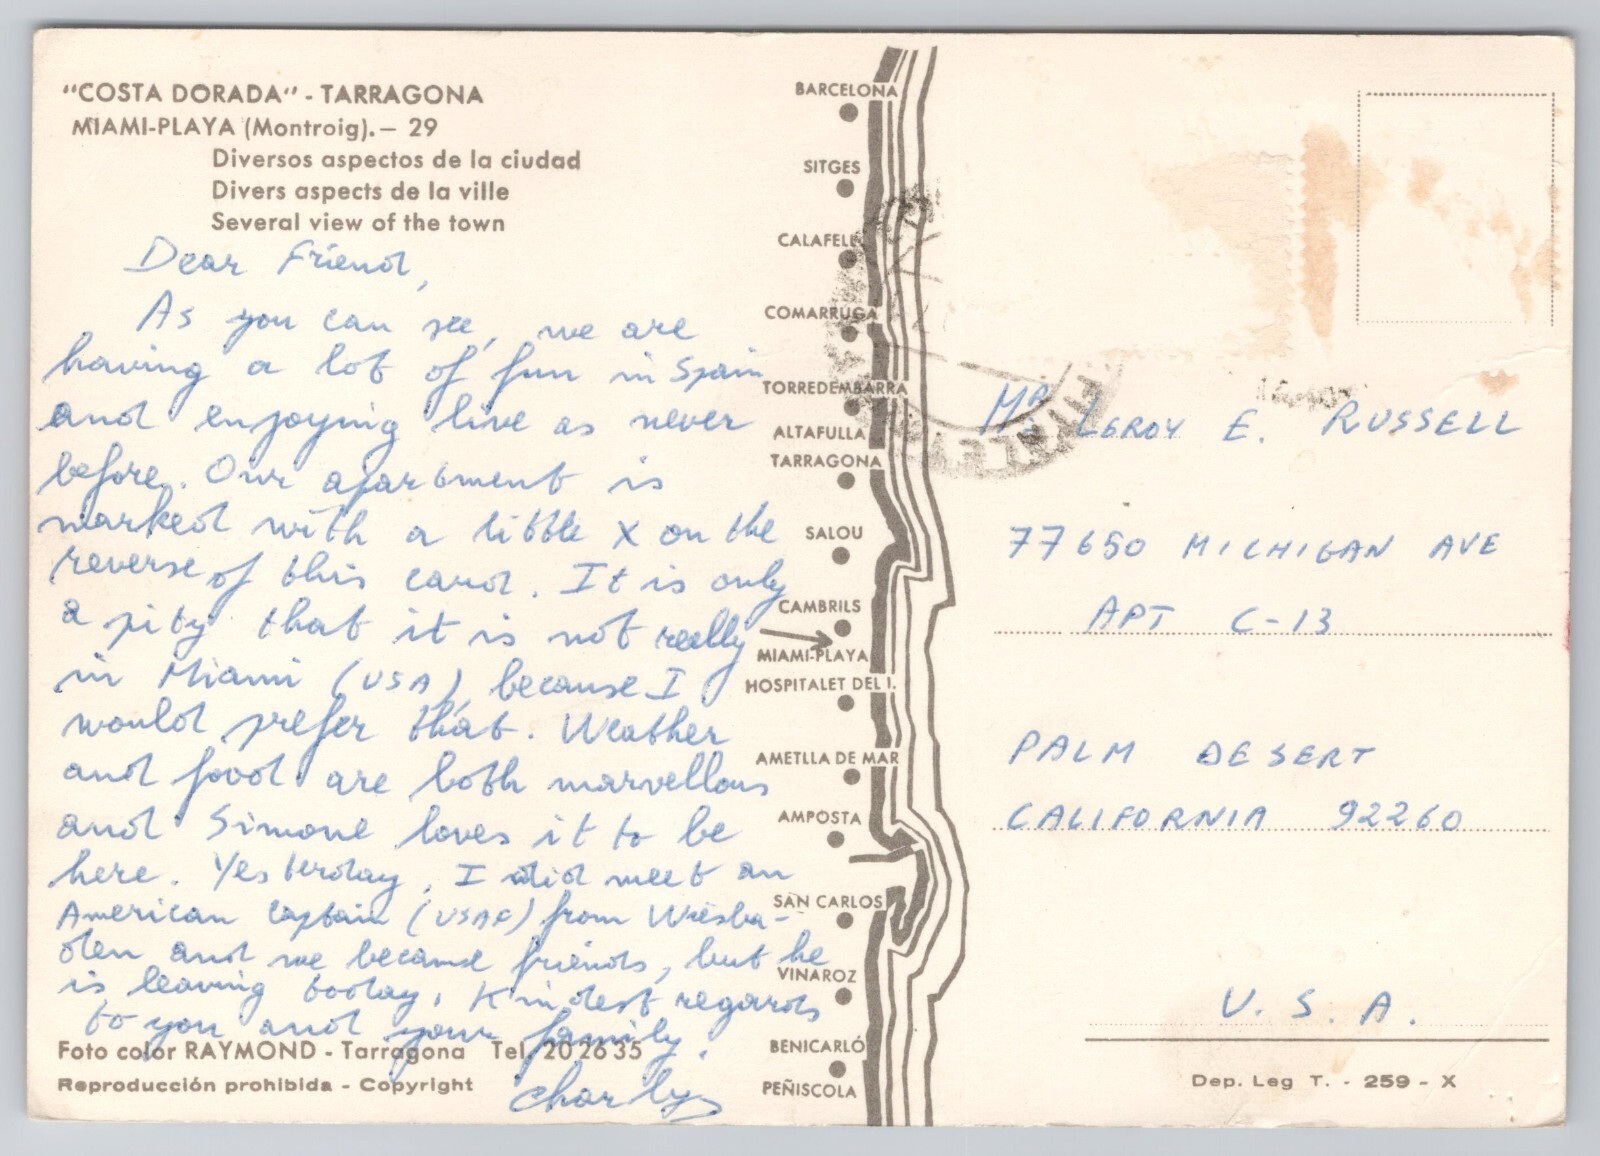 "COSTA DORADA" - TARRAGONA
MIAMI-PLAYA (Montroig). — 29
Diversos aspectos de la ciudad
Divers aspects de la ville
Several view of the town
Dear Friend,
As you can see, we are
having a lot of fun in Spain
and enjoying live as never
before. Our apartment is
marked with a little X on the
reverse of this card. It is only
a pity that it is not really
in Miami (USA), because I
would prefer that. Weather
and food are both marvellous
and Simone loves it to be
here. Yesterday, I did meet an
American Captain (USAF) from Wiesba-
den and we became friends, but he
is leaving today. Kindest regards
to you and your family.
Charlys
Foto color RAYMOND - Tarragona Tel. 20 26 35
Reproducción prohibida - Copyright
BARCELONA
SITGES
CALAFELL
COMARRUGA
TORREDEMBARRA
ALTAFULLA
TARRAGONA
SALOU
CAMBRILS
MIAMI-PLAYA
HOSPITALET DEL I.
AMETLLA DE MAR
AMPOSTA
SAN CARLOS
VINAROZ
BENICARLÓ
PEÑISCOLA
MR. LEROY E. RUSSELL
77650 MICHIGAN AVE
APT C-13
PALM DESERT
CALIFORNIA 92260
U. S. A.
Dep. Leg T. - 259 - X